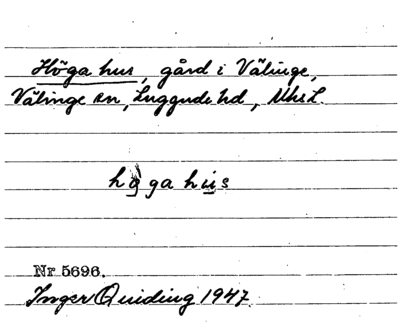 Höga hus, gård i Välinge,
Välinge sn, Luggude hd, Mhs L.
högahus
Nr 5696.
Inger Quiding 1947.